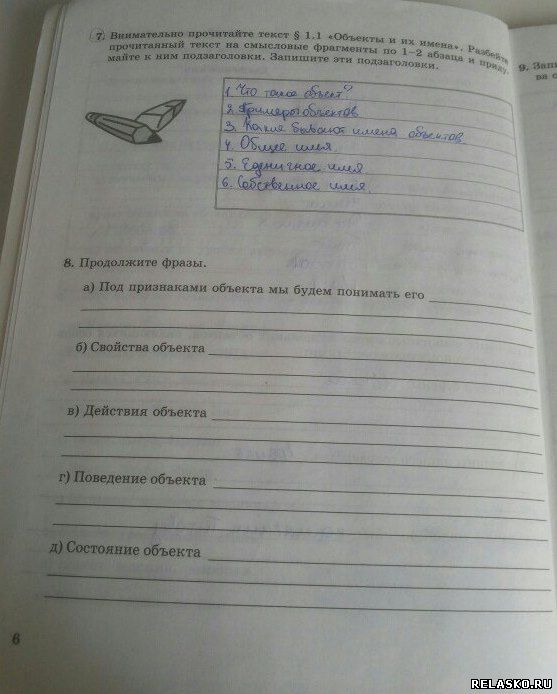 7. Внимательно прочитайте текст § 1.1 «Объекты и их имена». Разбейте
прочитанный текст на смысловые фрагменты по 1–2 абзаца и приду-
майте к ним подзаголовки. Запишите эти подзаголовки.
1. Что такое объект?
2. Примеры объектов
3. Какие бывают имена объектов
4. Общее имя
5. Единичное имя
6. Собственное имя.
8. Продолжите фразы.
а) Под признаками объекта мы будем понимать его
б) Свойства объекта
в) Действия объекта
г) Поведение объекта
д) Состояние объекта
6
9. Запи
ва с
RELASKO.RU